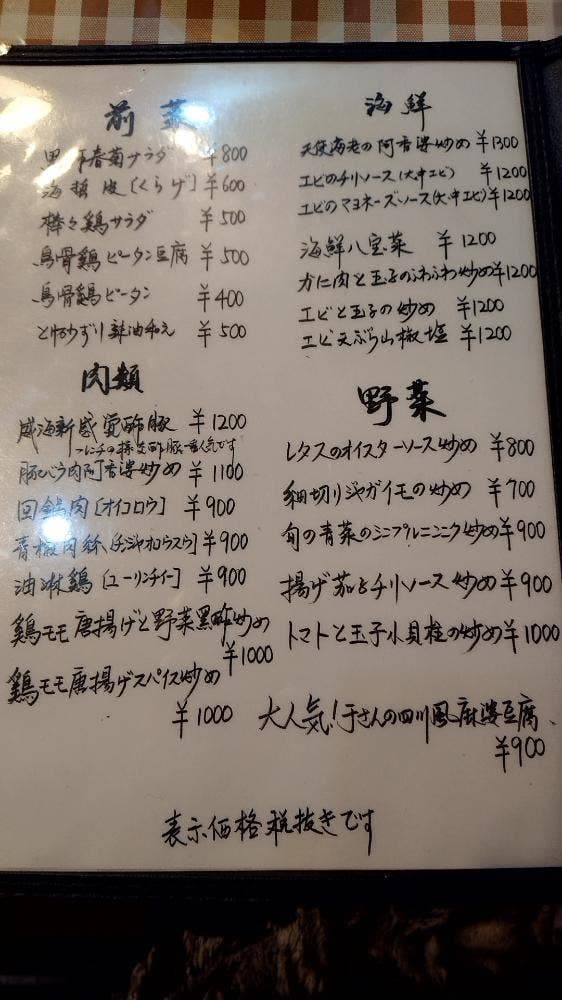 前菜
春菊サラダ ¥800
海哲皮[くらげ] ¥600
棒々鶏サラダ ¥500
烏骨鶏ピータン豆腐 ¥500
烏骨鶏ピータン ¥400
¥500
肉類
威海新感覚酢豚 ¥1200
酢豚一番人気です
豚バラ肉阿香婆炒め ¥1100
回鍋肉[オイコロウ] ¥900
青椒肉絲[チンジャオロウスウ] ¥900
油淋鶏[ユーリンチイー] ¥900
鶏モモ唐揚げと野菜黒酢炒め
¥1000
鶏モモ唐揚げスパイス炒め
¥1000
海鮮
天使海老の阿香婆炒め ¥1300
エビのチリソース(大.中エビ) ¥1200
エビのマヨネーズソース(大.中エビ) ¥1200
海鮮八宝菜 ¥1200
かに肉と玉子のふわふわ炒め ¥1200
エビと玉子の炒め ¥1200
エビ天ぷら山椒塩 ¥1200
野菜
レタスのオイスターソース炒め ¥800
細切りジャガイモの炒め ¥700
旬の青菜のシンプルニンニク炒め ¥900
揚げ茄子チリソース炒め ¥900
トマトと玉子小貝柱の炒め ¥1000
大人気!于さんの四川風麻婆豆腐.
¥900
表示価格税抜きです